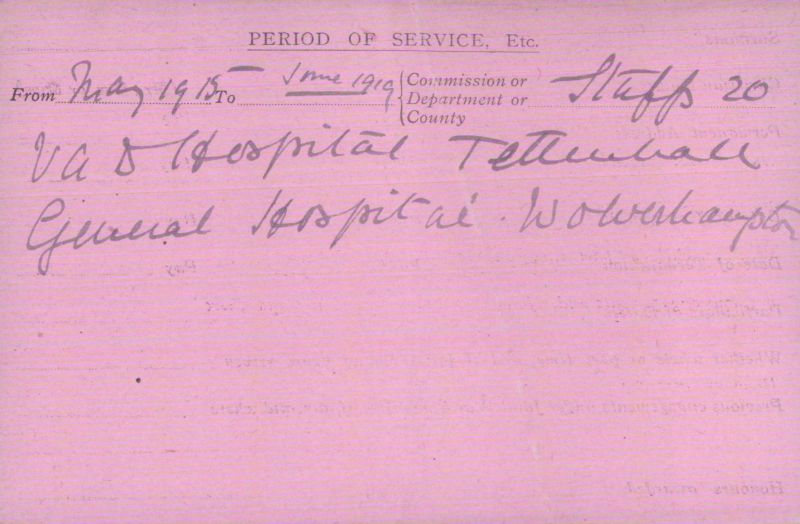 PERIOD OF SERVICE, Etc.
From May 1915 To June 1919 { Commission or Department or County Staffs 20
VAD Hospital Tettenhall
General Hospital. Wolverhampton